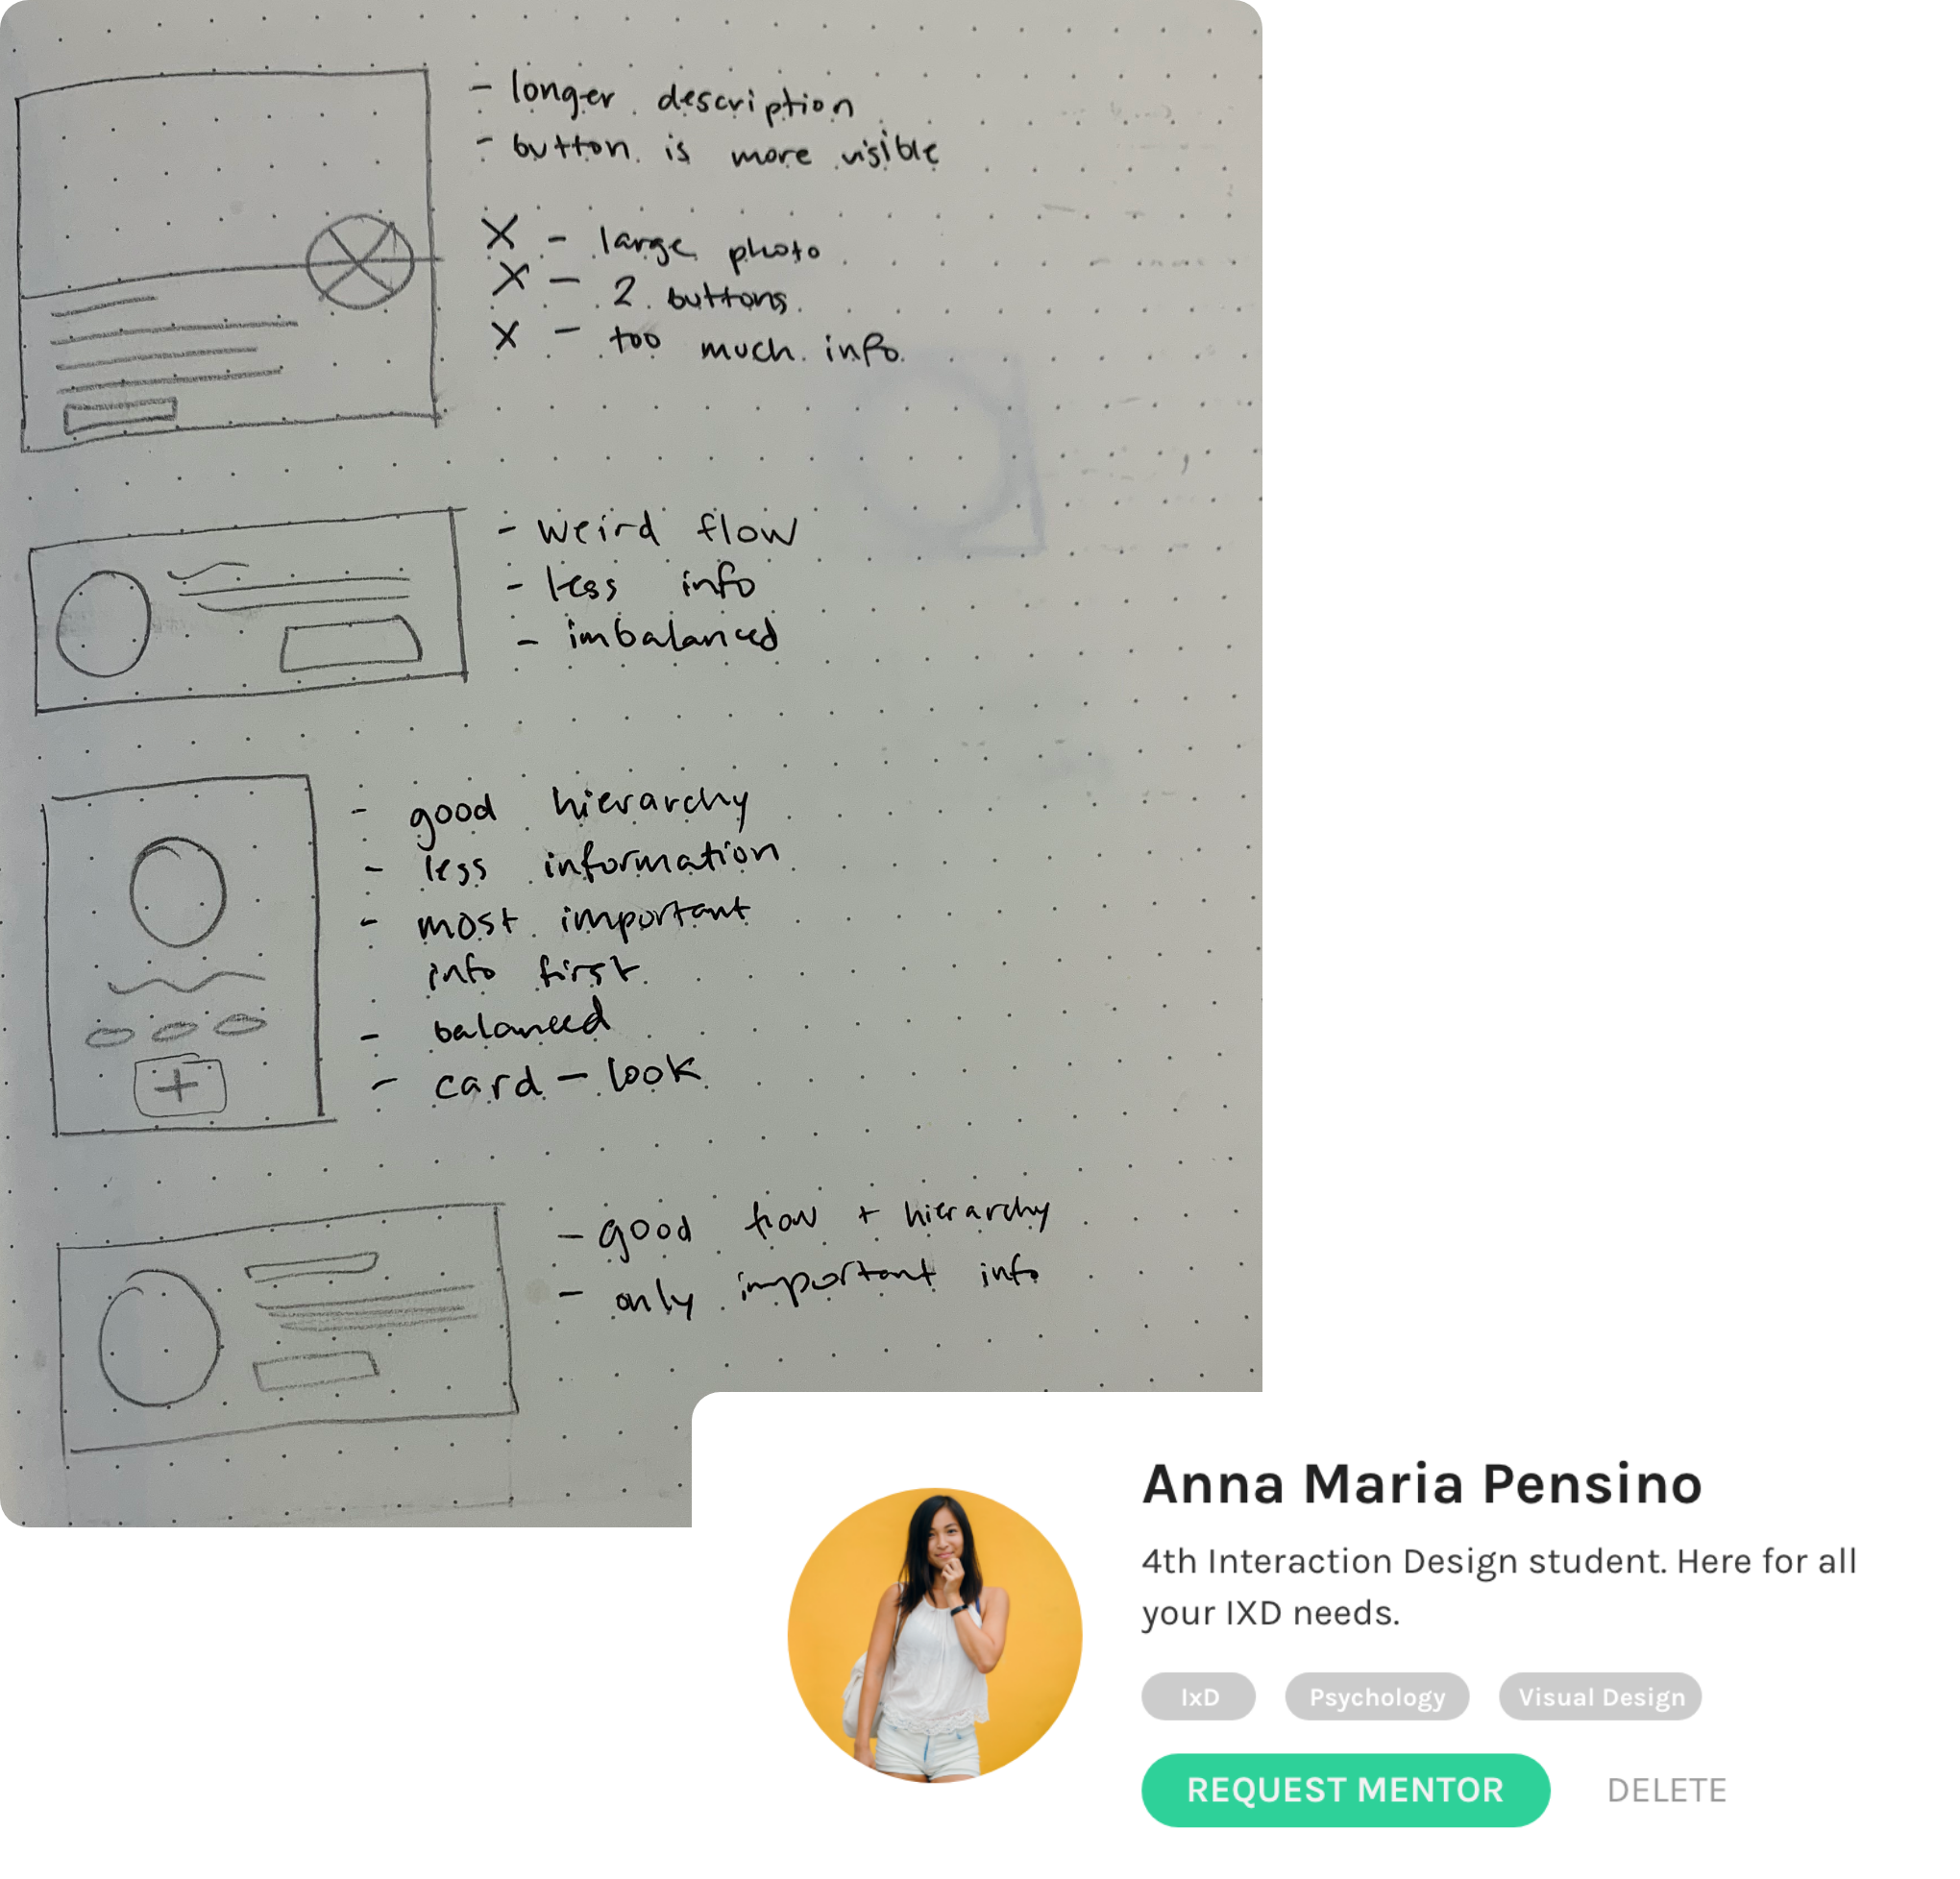 - longer description
- button is more visible
X - large photo
X - 2 buttons
X - too much info
- weird flow
- less info
- imbalanced
- good hierarchy
- less information
- most important
info first
- balanced
- card - look
- good flow + hierarchy
- only important info
Anna Maria Pensino
4th Interaction Design student. Here for all
your IXD needs.
IxD Psychology Visual Design
REQUEST MENTOR DELETE